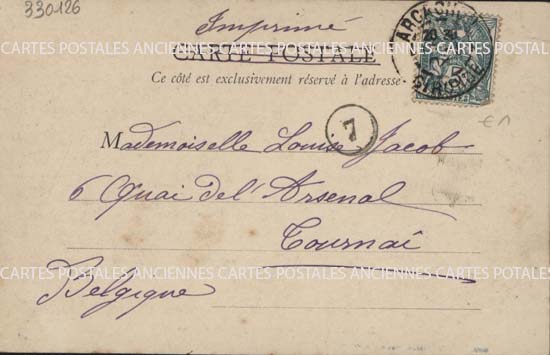 330126
Imprimé
CARTE POSTALE
Ce côté est exclusivement réservé à l'adresse
ARCACHON
GIRONDE
CARTES POSTALES ANCIENNES CARTES POSTALES ANCIENNES CARTES POSTALES
€1
7
Mademoiselle Louise Jacob
6 Quai de l'Arsenal
Tournai
CARTES POSTALES ANCIENNES CARTES POSTALES ANCIENNES CARTES POSTALES
Belgique